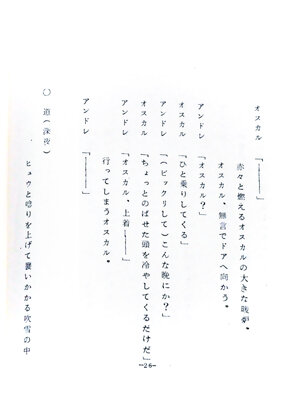 オスカル「―――」
赤々と燃えるオスカルの大きな暖炉。
オスカル、無言でドアへ向かう。
アンドレ「オスカル？」
オスカル「ひと乗りしてくる」
アンドレ「（ビックリして）こんな晩にか？」
オスカル「ちょっとのぼせた頭を冷やしてくるだけだ」
アンドレ「オスカル、上着――」
行ってしまうオスカル。
アンドレ「―――」
○　道（深夜）
ヒュウと唸りを上げて襲いかかる吹雪の中
-26-